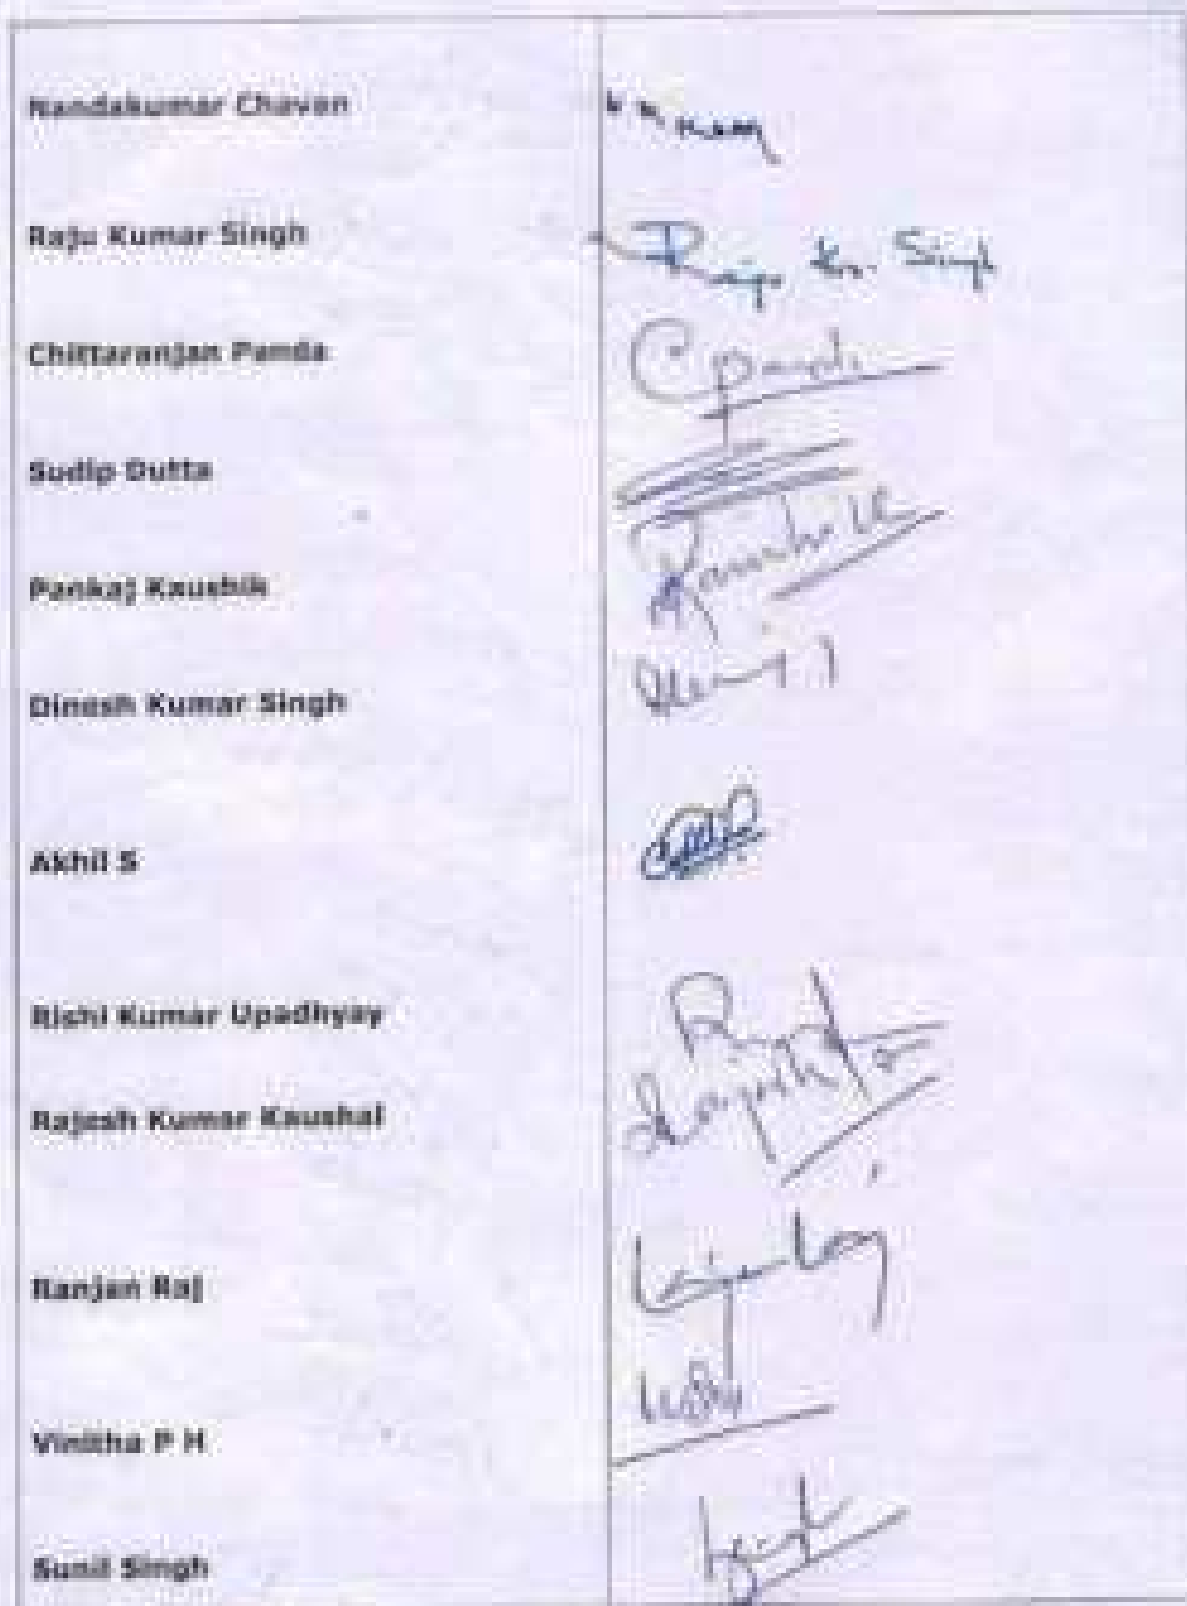 Nandakumar Chavan
Raju Kumar Singh
Raju Kr. Singh
Chittaranjan Panda
CPanda
Sudip Dutta
Pankaj Kaushik
Kaushik
Dinesh Kumar Singh
Akhil S
Rishi Kumar Upadhyay
Rajesh Kumar Kaushal
Rajesh
Ranjan Raj
Vinitha P H
Sunil Singh